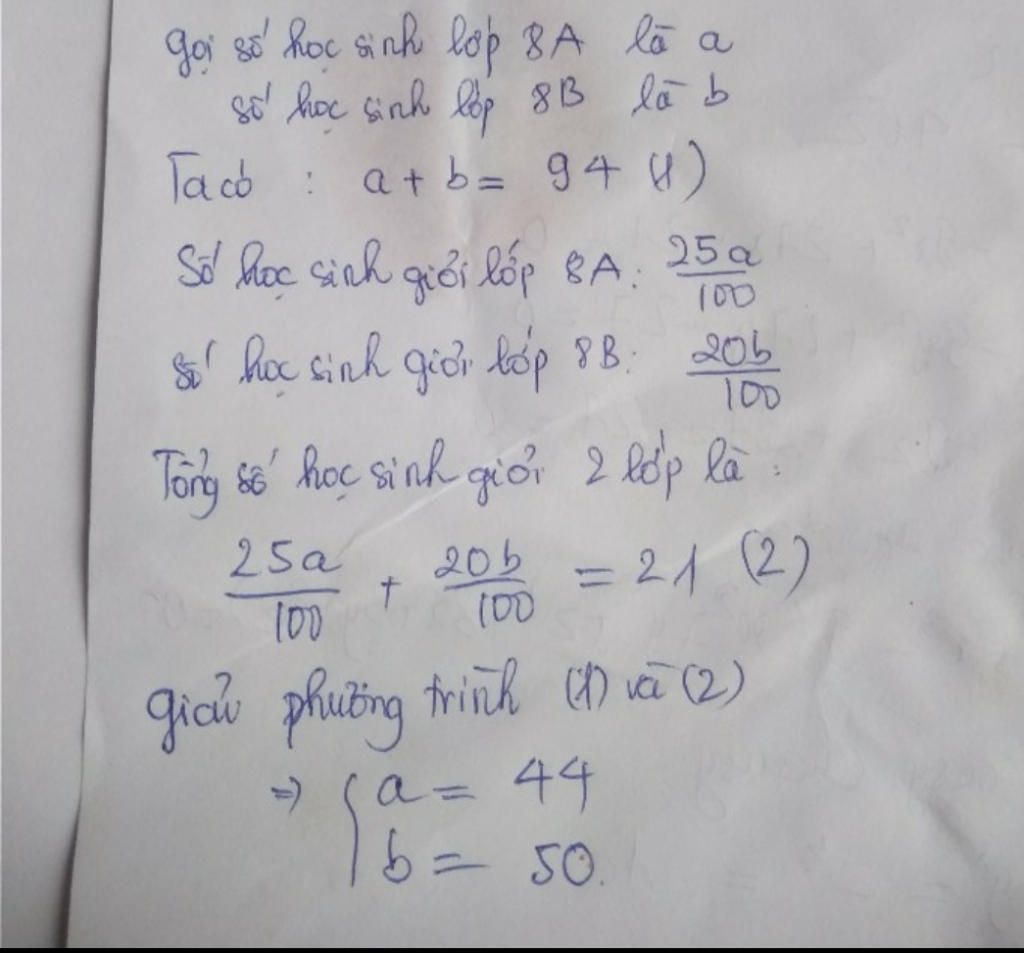 Gọi số học sinh lớp 8A là a
số học sinh lớp 8B là b
Ta có : a + b = 94 (1)
Số học sinh giỏi lớp 8A: 25a/100
số học sinh giỏi lớp 8B: 20b/100
Tổng số học sinh giỏi 2 lớp là :
25a/100 + 20b/100 = 21 (2)
giải phương trình (1) và (2)
=> { a = 44
b = 50.